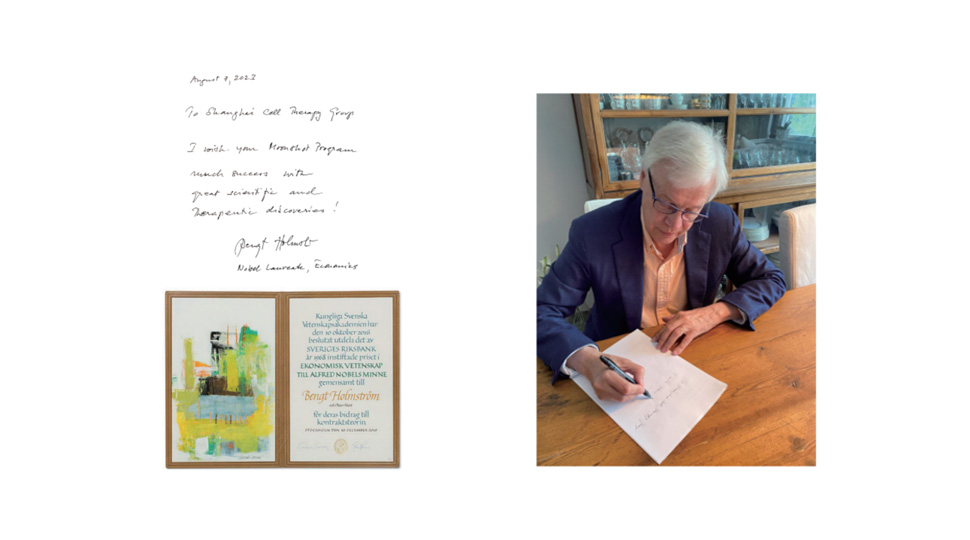 August 9, 2023
To Shanghai Cell Therapy Group
I wish your Moonshot Program
much success with
great scientific and
therapeutic discoveries!
Bengt Holmstr
Nobel Laureate, Economics
Kungliga Svenska
Vetenskapsakademien har
den 10 oktober 2016
beslutat utdela det av
SVERIGES RIKSBANK
år 1968 instiftade priset i
EKONOMISK VETENSKAP
TILL ALFRED NOBELS MINNE
gemensamt till
Bengt Holmström
och Oliver Hart
för deras bidrag till
kontraktsteorin.
STOCKHOLM DEN 10 DECEMBER 2016